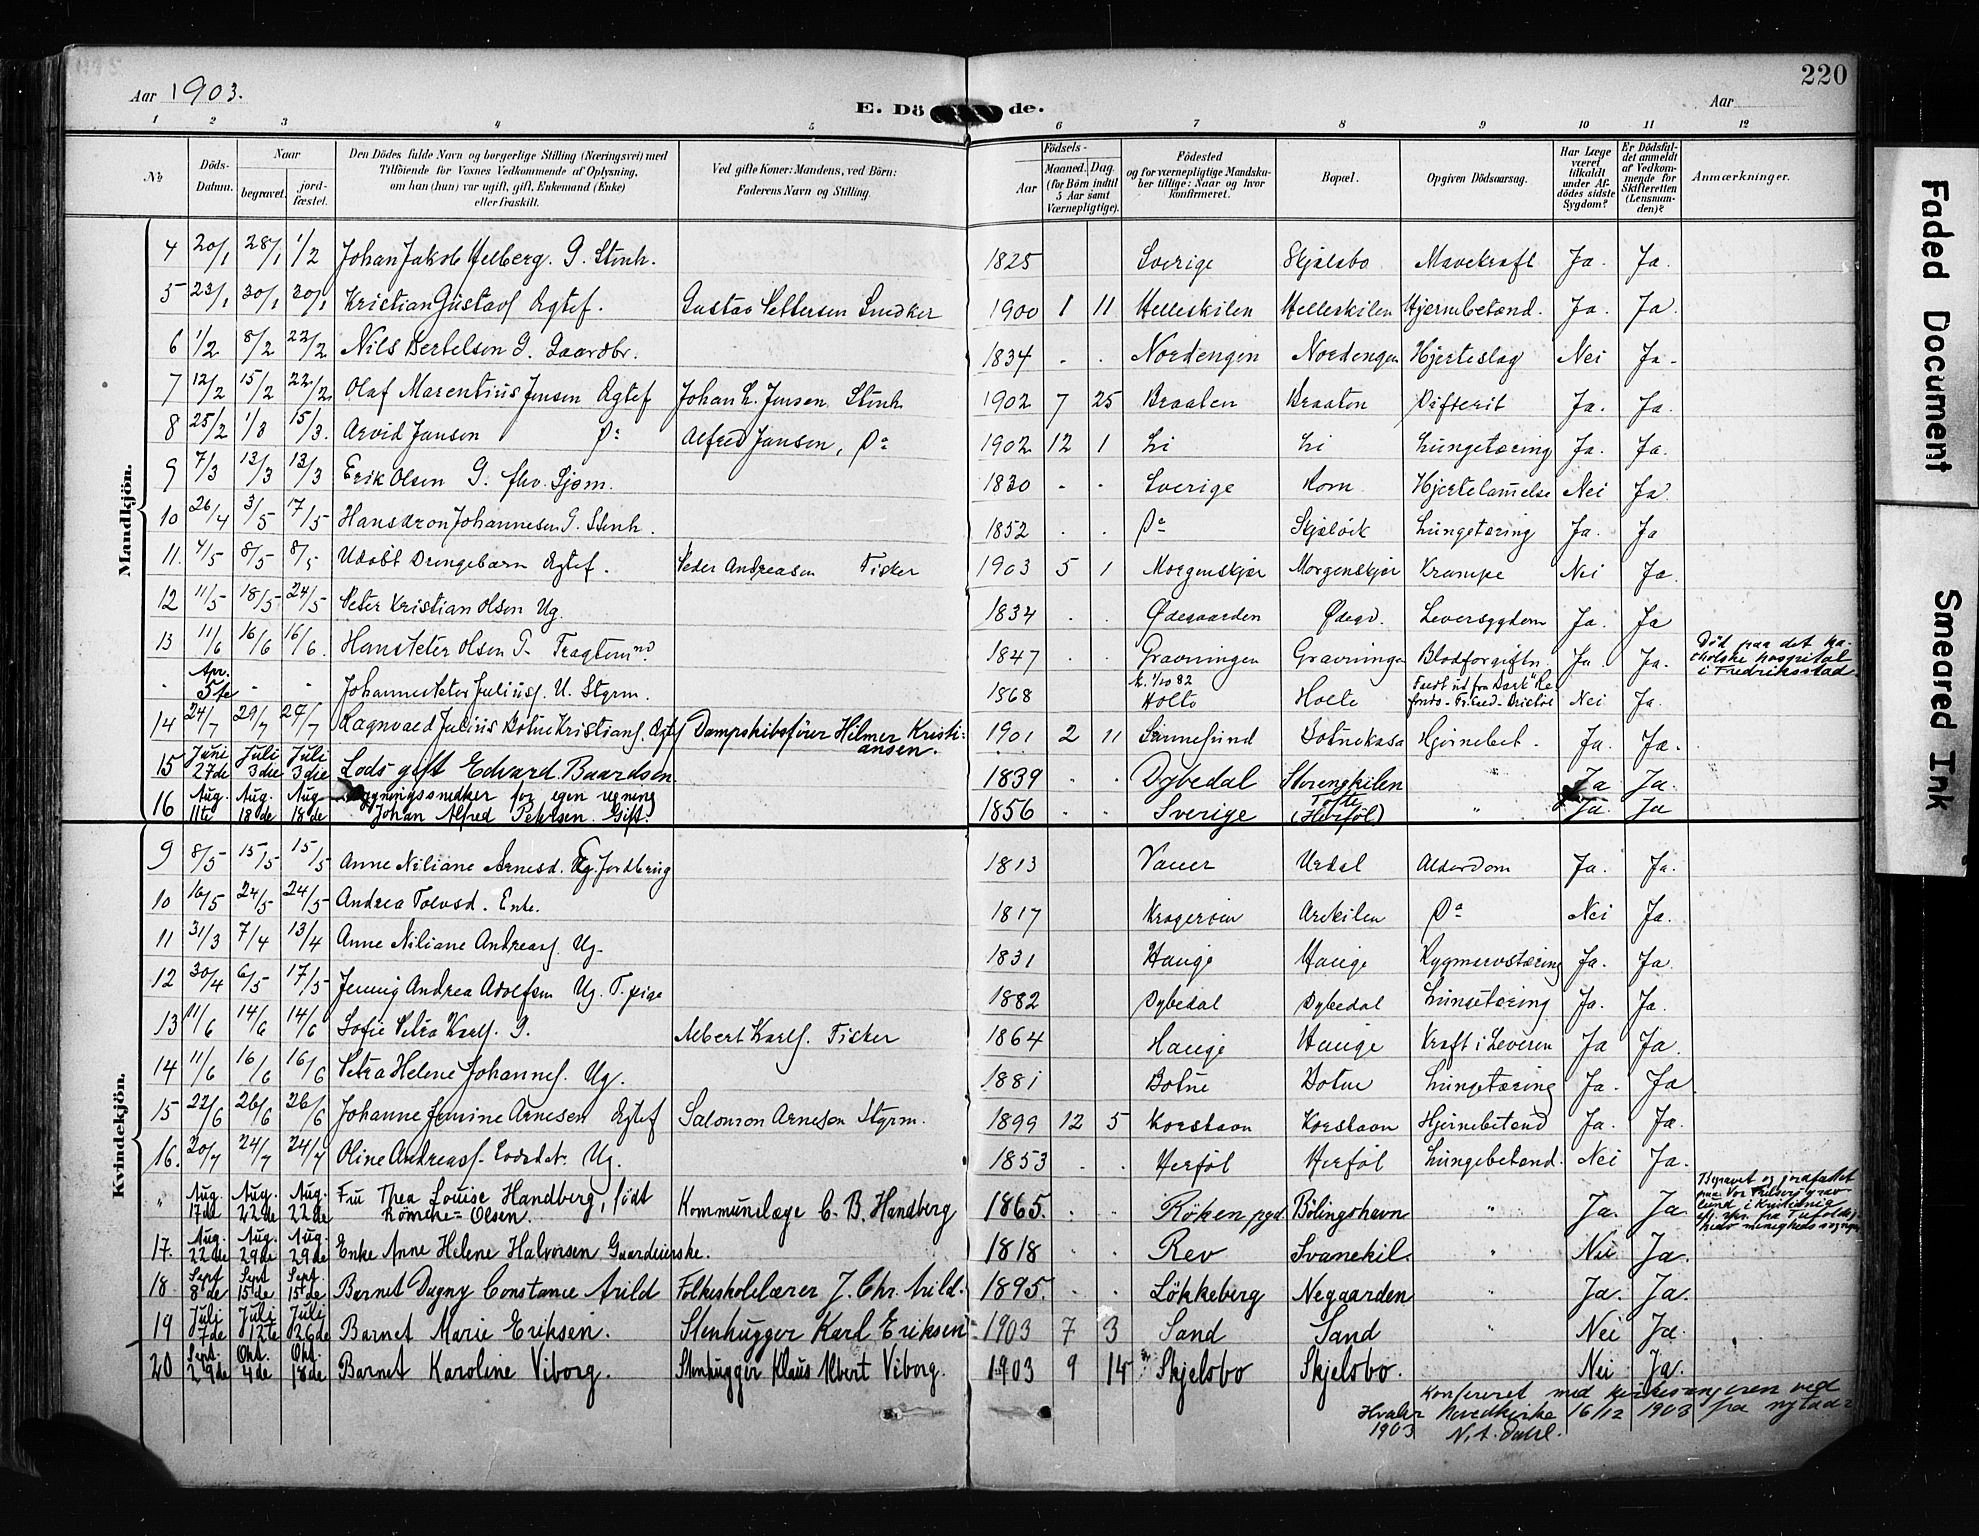 Aar 1903.
E. Dö de.
Aar
220
1 2 3 4 5 6 7 8 9 10 11 12
No.
Döds-Datum.
Naar
begravet.
jord-fæstet.
Den Dödes fulde Navn og borgerlige Stilling (Næringsvei) med
Tilföiende for Voxnes Vedkommende af Oplysning,
om han (hun) var ugift, gift, Enkemand (Enke)
eller fraskilt.
Ved gifte Koner: Mandens, ved Börn:
Faderens Navn og Stilling.
Födsels-
Aar
Maaned. Dag.
(for Börn indtil
5 Aar samt
Værnepligtige).
Födested
og for værnepligtige Mandska-
ber tillige: Naar og hvor
konfirmeret.
Bopæl.
Opgiven Dödsaarsag.
Har Læge
været
tilkaldt
under Af-
dödes sidste
Sygdom?
Er Dödsfal-
det anmeldt
af Vedkom-
mende for
Skifteretten
(Lensman-
den)?
Anmærkninger.
Mandkjön.
4 20/1 28/1 1/2 Johan Jakob Helberg. G. Stenh. 1825 Sverige Skjælsbo Mavekræft Ja. Ja.
5 23/1 30/1 30/1 Kristian Gustavs. Ægtef. Gustav Pettersen Snedker 1900 1 11 Helleskilen Helleskilen Hjernebetænd. Ja. Ja.
6 1/2 8/2 22/2 Nils Bertelsen G. Gaardbr. 1834 . . Nordengen Nordengen Hjerteslag Nei Ja.
7 12/2 15/2 22/2 Olaf Marentius Jensen Ægtef Johan L. Jensen Stenh 1902 7 25 Braaten Braaten Difterit Ja. Ja.
8 25/2 1/3 15/3. Arvid Jansen Do Alfred Jansen, Do 1902 12 1 Li Li Lungetæring Ja. Ja.
9 7/3 13/3 13/3 Erik Olsen G. fhv. Sjøm. 1830 - . Sverige Korn Hjertelamelse Nei Ja.
10 26/4 3/5 17/5 Hans Aron Johannesen G. Stenh. 1852 . . Do Skjælvik Lungetæring Ja. Ja
11. 4/5 8/5 8/5 Udøbt Drengebarn Ægtef. Peder Andreasen Fisker 1903 5 1 Morgenskjær Morgenskjær Krampe Nei Ja.
12 11/5 18/5 24/5 Peter Kristian Olsen Ug. 1834 . . Ødegaarden Ødegd. Leversygdom Ja. Ja
13 11/6 16/6 16/6. Hans Peter Olsen G. Fragtem nd. 1847 . Gravningen Gravninge Blodforgiftn. Ja Ja. Död paa det ka-
tholske hospital
i Fredriksstad.
. Apr. 5te - - Johannes Peter Juliuss. U. Styrm. 1868 K. 1/10 82 Holte Holte Nei Ja.
14 24/7 29/7 29/7 Ragnvald Julius Botne Kristians. Ægtef Dampskibsfører Hilmer Kristi-
ansen. 1901 2 11 Botnekasa Hjernebet. Ja. Ja.
15 Juni 27de Juli 3die Juli 3die Lods gift Edvard Baardsen 1839 . . Dybedal Storengkilen Ja Ja.
16 Aug. 11te Aug. 18de Aug. 18de Bygningssnedker for egen regning
Johan Alfred Petersen. Gift. 1856 . . Sverige Tofte (Herføl) " Ja Ja
Kvindekjön.
9 8/5 15/5 15/5 Anne Niliane Arnesd. Ug. Jordbrug 1813 Vauer Urdal Alderdom Ja. Ja.
10 16/5 24/5 24/5 Andrea Toevsd. Enke. 1817 Kragerøen Arekilen Do Nei Ja.
11 31/3 7/4 13/4 Anne Niliane Andreass. Ug. 1831 Hauge Hauge Rygmarvstæring Ja. Ja.
12 30/4 6/5 17/5 Jenny Andrea Adolfsen Ug. T.pige 1882 Dybedal Dybedal Lungetæring Ja. Ja.
13 11/6 14/6 14/6 Sofie Petra Karls. G. Albert Karls. Fisker 1864 Hauge Hauge Kræft i Leveren Ja Ja.
14 11/6 16/6 16/6 Petra Helene Johannes. Ug. 1881 Botne Botne Lungetæring Ja. Ja.
15 22/6 26/6 26/6 Johanne Jemine Arnesen Ægtef Salomon Arnesen Styrm. 1899 12 5 Korshavn Korshavn Hjernebetænd Ja. Ja.
16. 20/7 24/7 24/7 Oline Andreass. Lodsdatr. Ug. 1853 . . Herføl Herføl Lungebetænd. Nei Ja.
" Aug. 17de Aug. 22de Aug. 22de Fru Thea Louise Handberg, født
Olsen. Kommunelæge C. B. Handberg 1865. . . Röken pgd. Bölingshavn " Ja. Ja. Begravet og jordfæstet
17. Aug. 22de Aug. 29de Aug. 29de Enke Anne Helene Halvorsen Gaardeierske. 1818 . . Rev Svanekil. " Nei Ja.
18. Sept 8de Sept 15de Sept. 15de Barnet Dagny Constance Arild Folkeskolelærer J. Chr. Arild. 1895. . . Lökkeberg Negaarden " Ja. Ja.
19 Juli 7de Juli 12te Juli 26de Barnet Marie Eriksen. Stenhugger Karl Eriksen 1903 7 3 Sand Sand " Nei Ja.
20 Sept. 29de Okt. 4de Okt. 18de Barnet Karoline Viborg. Stenhugger Klaus Albert Viborg. 1903 9 14 Skjelsbo Skjelsbo. Nei Ja.
Konfereret med kirkesangeren ved
Hvaler Hovedkirke 16/12 1903
1903 N. A. Dahl.
Faded Document
Smeared Ink